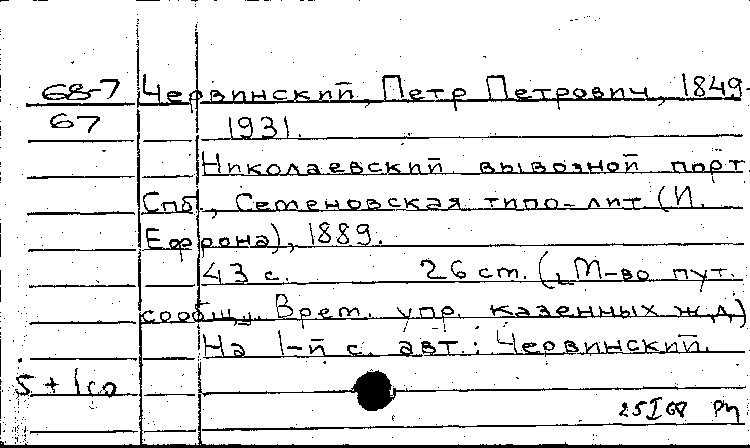 68-7 Червинский, Петр Петрович, 1849-
67 1931.
Николаевский вывозной порт
Спб., Семеновская типо-лит. (И.
Ефрона), 1889.
43 с. 26 cm. (М-во пут.
сообщ. Врем. упр. казенных ж.д.)
На 1-й с. авт.: Червинский.
5 + 1со
25 I 68